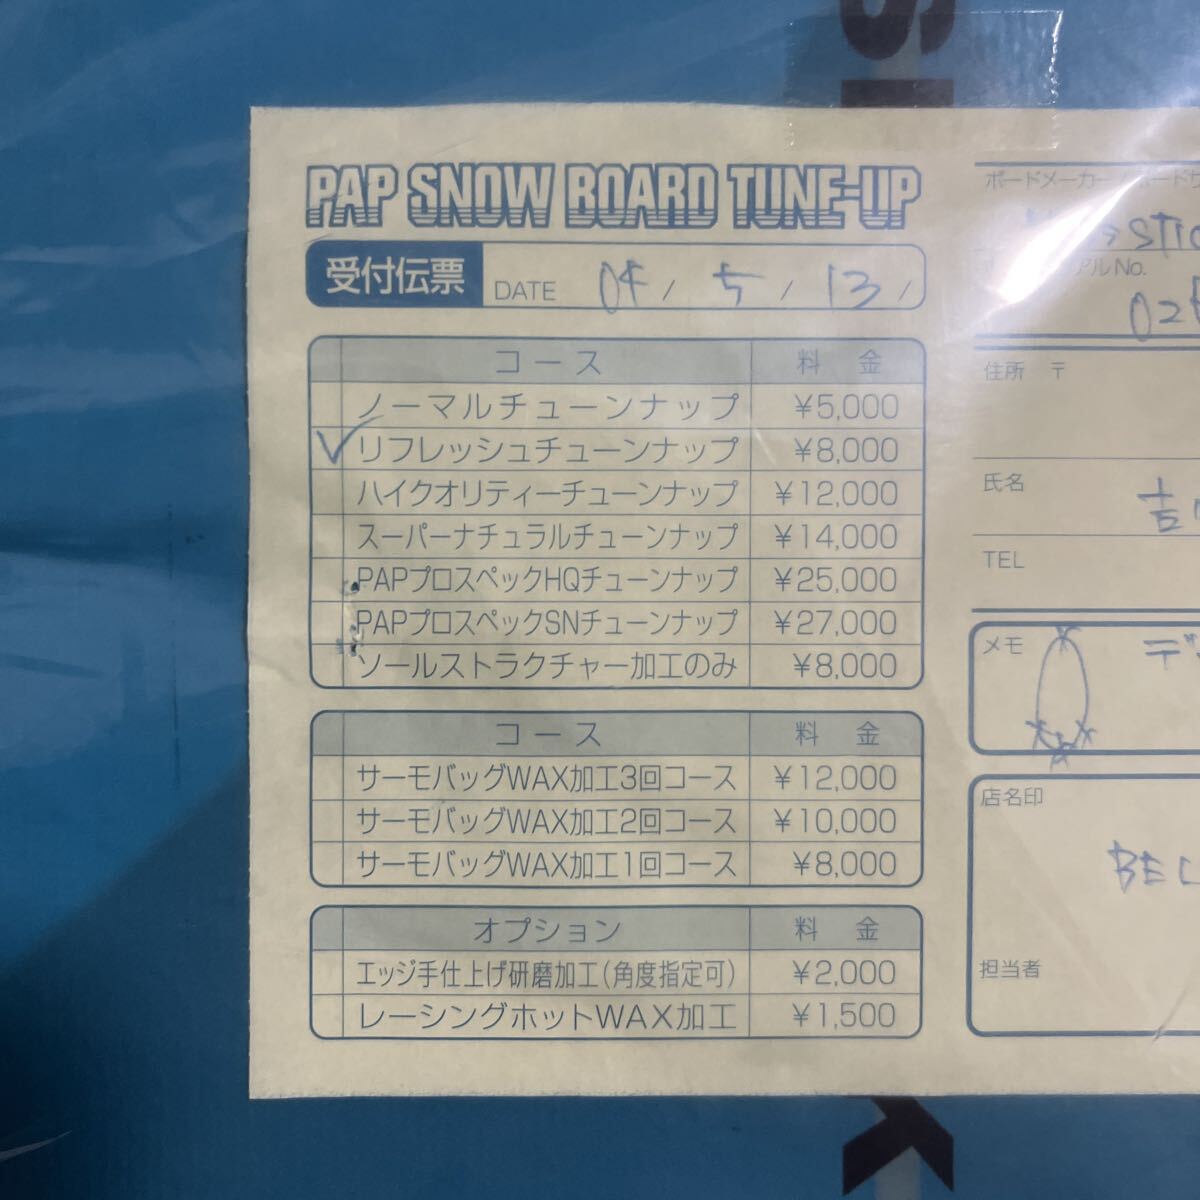 PAP SNOW BOARD TUNE-UP
受付伝票 DATE 04 / 5 / 13 /
コース 料金
ノーマルチューンナップ ¥5,000
✓ リフレッシュチューンナップ ¥8,000
ハイクオリティーチューンナップ ¥12,000
スーパーナチュラルチューンナップ ¥14,000
PAPプロスペックHQチューンナップ ¥25,000
PAPプロスペックSNチューンナップ ¥27,000
ソールストラクチャー加工のみ ¥8,000
コース 料金
サーモバッグWAX加工3回コース ¥12,000
サーモバッグWAX加工2回コース ¥10,000
サーモバッグWAX加工1回コース ¥8,000
オプション 料金
エッジ手仕上げ研磨加工(角度指定可) ¥2,000
レーシングホットWAX加工 ¥1,500
ボードメーカー/ボードサ
アルNo.
住所 〒
氏名
吉
TEL
メモ
店名印
BEL
担当者